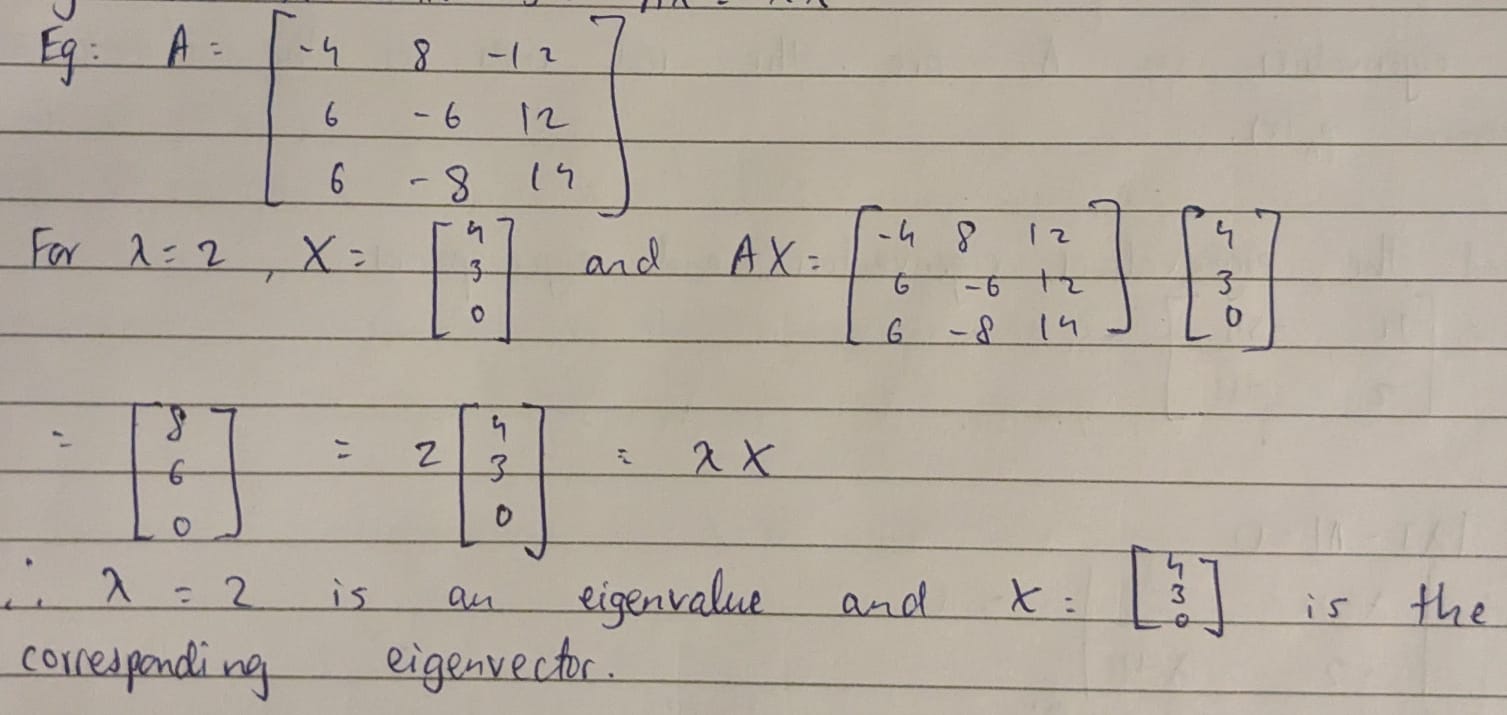 Eg: A = [ -4 8 -12
6 -6 12
6 -8 14 ]
For λ = 2 , X = [ 4 3 0 ] and AX = [ -4 8 12 6 -6 12 6 -8 14 ] [ 4 3 0 ]
= [ 8 6 0 ] = 2 [ 4 3 0 ] = λ X
∴ λ = 2 is an eigenvalue and X = [ 4 3 0 ] is the
corresponding eigenvector.